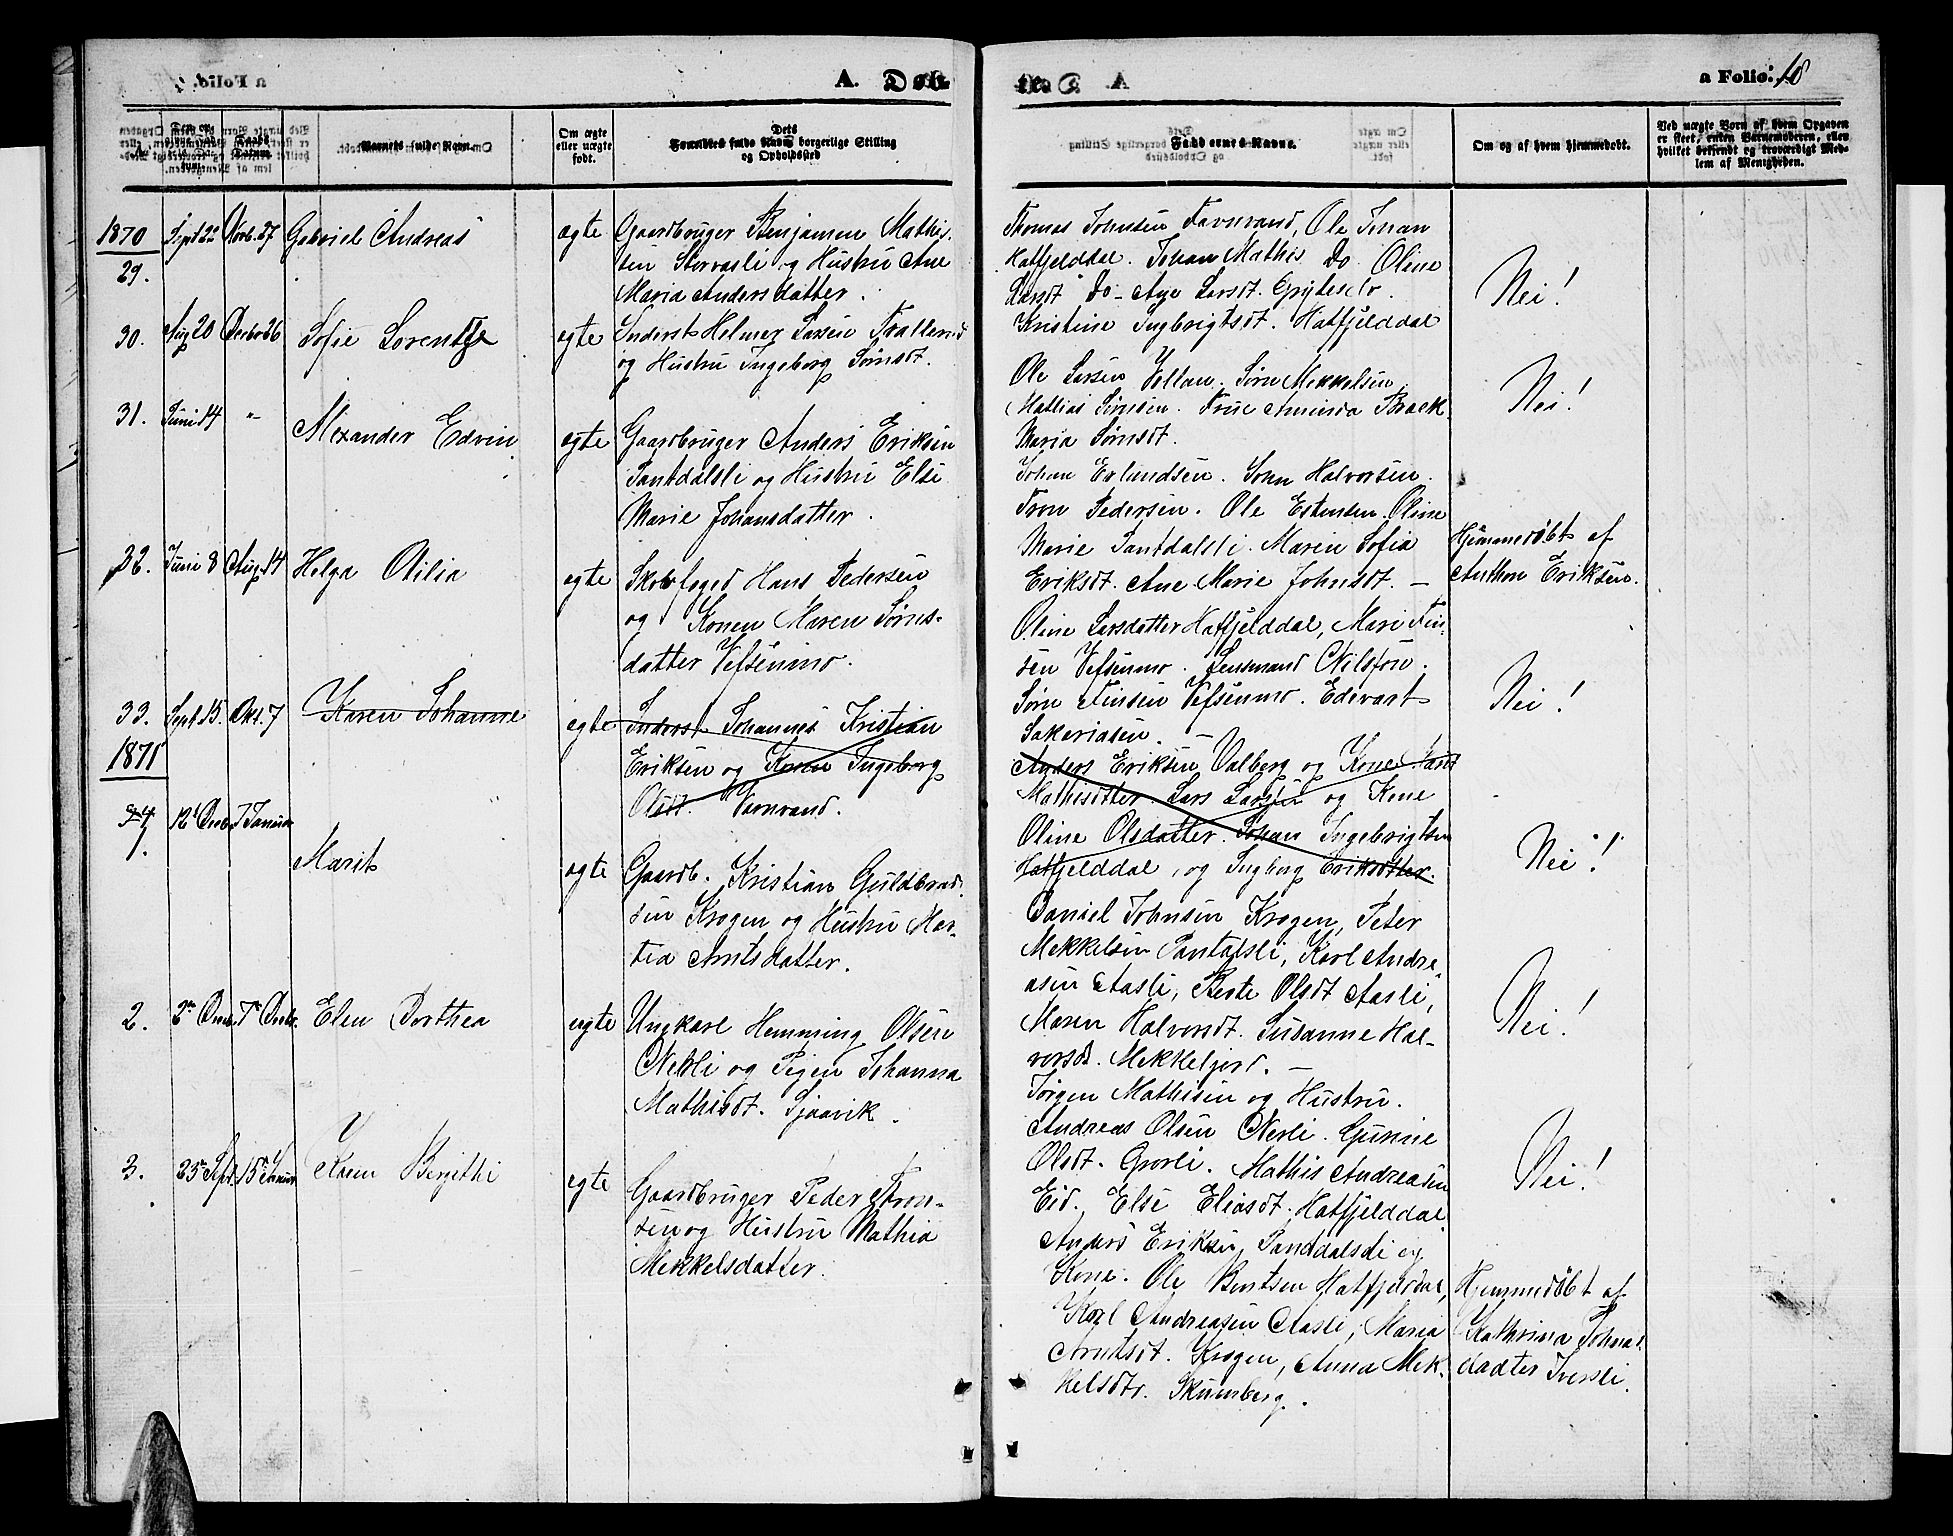 A. Døb-
te.
a Folio. 18
Barnets fulde Navn.
Om ægte eller uægte født.
Dets Forældres fulde Navn, borgerlige Stilling og Opholdssted
Faddernes Navne.
Om og af hvem hjemmedøbt.
Ved uægte Børn af hvem Opgaven er skeet, enten Barnemoderen, eller hvilket bekiendt og troværdigt Medlem af Menigheden.
1870
29. Sept 22 Novb. 27 Gabriel Andreas ægte Gaardbruger Benjamen Mathis-
sen Storvasli og Hustru Ane
Maria Andersdatter.
Thomas Johnsen Favnvand, Ole Johan
Hatfjelddal. Johan Mathis Do Oline
Larsdt Do - Ane Larsdt. Grytesels.
Kristine Ingbrigtsdt. Hatfjelddal
Nei!
30. Aug 20 Decbr 26 Sofie Lorentze egte Inderst Helmer Larsen
og Hustru Ingeborg Sørnsdt.
Ole Larsen Vollan. Sørn Mekkelsen
Mathias Sørnsen. Frue Aminda Brock
Maria Sørnsdt.
Nei!
31. Juni 14 " Alexander Edvin egte Gaardbruger Anders Eriksen
Pantdalsli og Hustru Else
Marie Johansdatter.
Johan Erlandsen. John Halvorsen.
Tron Pedersen. Ole Estensen. Oline
Marie Pantdalsli. Maren Sofia
Eriksdt. Ane Marie Johnsdt. —
Hjemmedøbt af
Anthon Eriksen.
32. Juni 8 Aug. 14 Helga Otilia egte Skolefoged Hans Pedersen
og Konen Maren Sørns-
datter Vefsenmo.
Oline Larsdatter Hatfjelddal, Mari Fin-
sen Vefsenmo. Lensmand Nilsson.
Sørn Finsen Vefsenmo. Edevart
Sakeriasen. —
Nei!
33. Sept. 15. Okt. 7 Karen Johanne egte Inderst Johannes Kristian
Eriksen og Kone Ingeborg
Olsdt. Varnvand.
Anders Eriksen Valberg og Kone
Mathisdtter. Lars Larsen og Kone
Oline Olsdatter. Johan Ingebrigtsen
Hatfjelddal, og Ingborg Eriksdtter.
Nei!
1871
34
1. 12t Decb. 7 Januar Marit egte Gaardb. Kristian Guldbrad-
sen Krogen og Hustru Mar-
tea Arntsdatter.
Daniel Johnsen Krogen, Peter
Mekkelsen Pantdalsli, Karl Andre-
asen Aasli, Berte Olsdt Aasli,
Maren Halvorsdt. Susanne Hal-
vorsdt. Mekkeljord. —
Nei!
2. Elen Dorthea egte Ungkarl Hemming Olsen
Nerli og Pigen Johanna
Mathisdt. Sjaavik.
Jørgen Mathisen og Hustru.
Andreas Olsen Nerli. Gunine
Olsdt. Grovli. Mathis Andreasen
Eid. Else Eliasdt. Hatfjelddal
Nei!
3. 25 Sept. 15 Januar Karen Bergithe egte Gaardbruger Peder Tron-
sen og Hustru Mathia
Mekkelsdatter.
Anders Eriksen, Pantdalsli og
Kone. Ole Bentsen Hatfjelddal,
Karl Andreasen Aasli, Maria
Arntsdt. Krogen, Anna Mek-
kelsdtr. Skumberg.
Hjemmedøbt af
Kathrina Johns-
dadter Iversli.